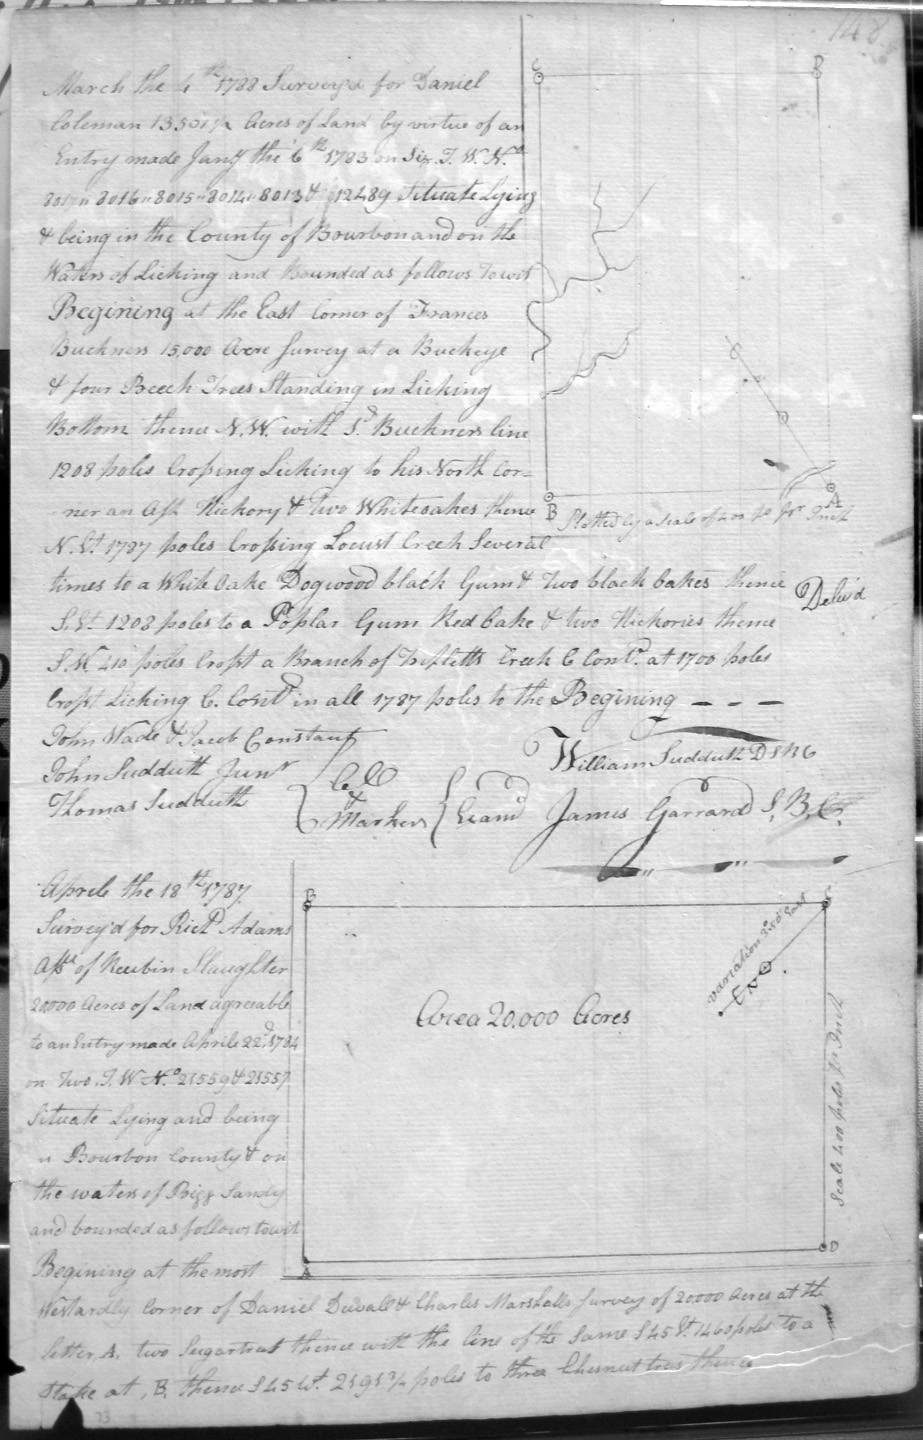 148
March the 4th 1788 Survey'd for Daniel
Coleman 13501 1/2 Acres of Land by virtue of an
Entry made Jany the 6th 1783 on Six T. W. No
8017 " 8016 " 8015 " 8014 " 8013 & 12489 Situate Lying
& being in the County of Bourbon and on the
Waters of Licking and Bounded as follows Towit
Begining at the East Corner of Frances
Buckners 15,000 Acre Survey at a Buckeye
& four Beech Trees Standing in Licking
Bottom thence N.W. with Sd Buckners line
1208 poles Crossing Licking to his North Cor-
ner an Ash Hickory & Two Whiteoakes thence
N.Et 1787 poles Crossing Locust Creek Several
times to a White Oake Dogwood black Gum & Two black Oakes thence
S.Et 1208 poles to a Poplar Gum Red Oake & two Hickories thence
S.W 210 poles Crosst a Branch of Tripletts Creek C Contd at 1700 poles
Crosst Licking C. Contd in all 1787 poles to the Begining - - -
C
D
C
D
B
A
Plotted by a Scale of 400 po pr Inch
Deliv'd
John Wade & Jacob Constant
John Sudduth Junr
Thomas Sudduth
C.C
&
Markers
Examd
William Sudduth D S B C
James Garrard S. B. C.
Aprile the 18th 1787
Survey'd for Richd Adams
Asse of Reubin Slaughter
20000 Acres of Land agreeable
to an Entry made Aprile 22d 1784
on Two T. W No 21559 & 21557
Situate Lying and being
n Bourbon County & on
the waters of Bigg Sandy
and bounded as follows towit
Begining at the most
Westardly Corner of Daniel Duvall & Charles Marshalls Survey of 20000 Acres at the
letter A. two Sugartreet thence with the line of the Same S 45 Et 1460 poles to a
Stake at B. thence S 45 Wt. 2191 3/4 poles to three Chesnut trees thence
B
C
Area 20.000 Acres
variation 3° 50' East
N
Scale 400 poles pr Inch
A
D